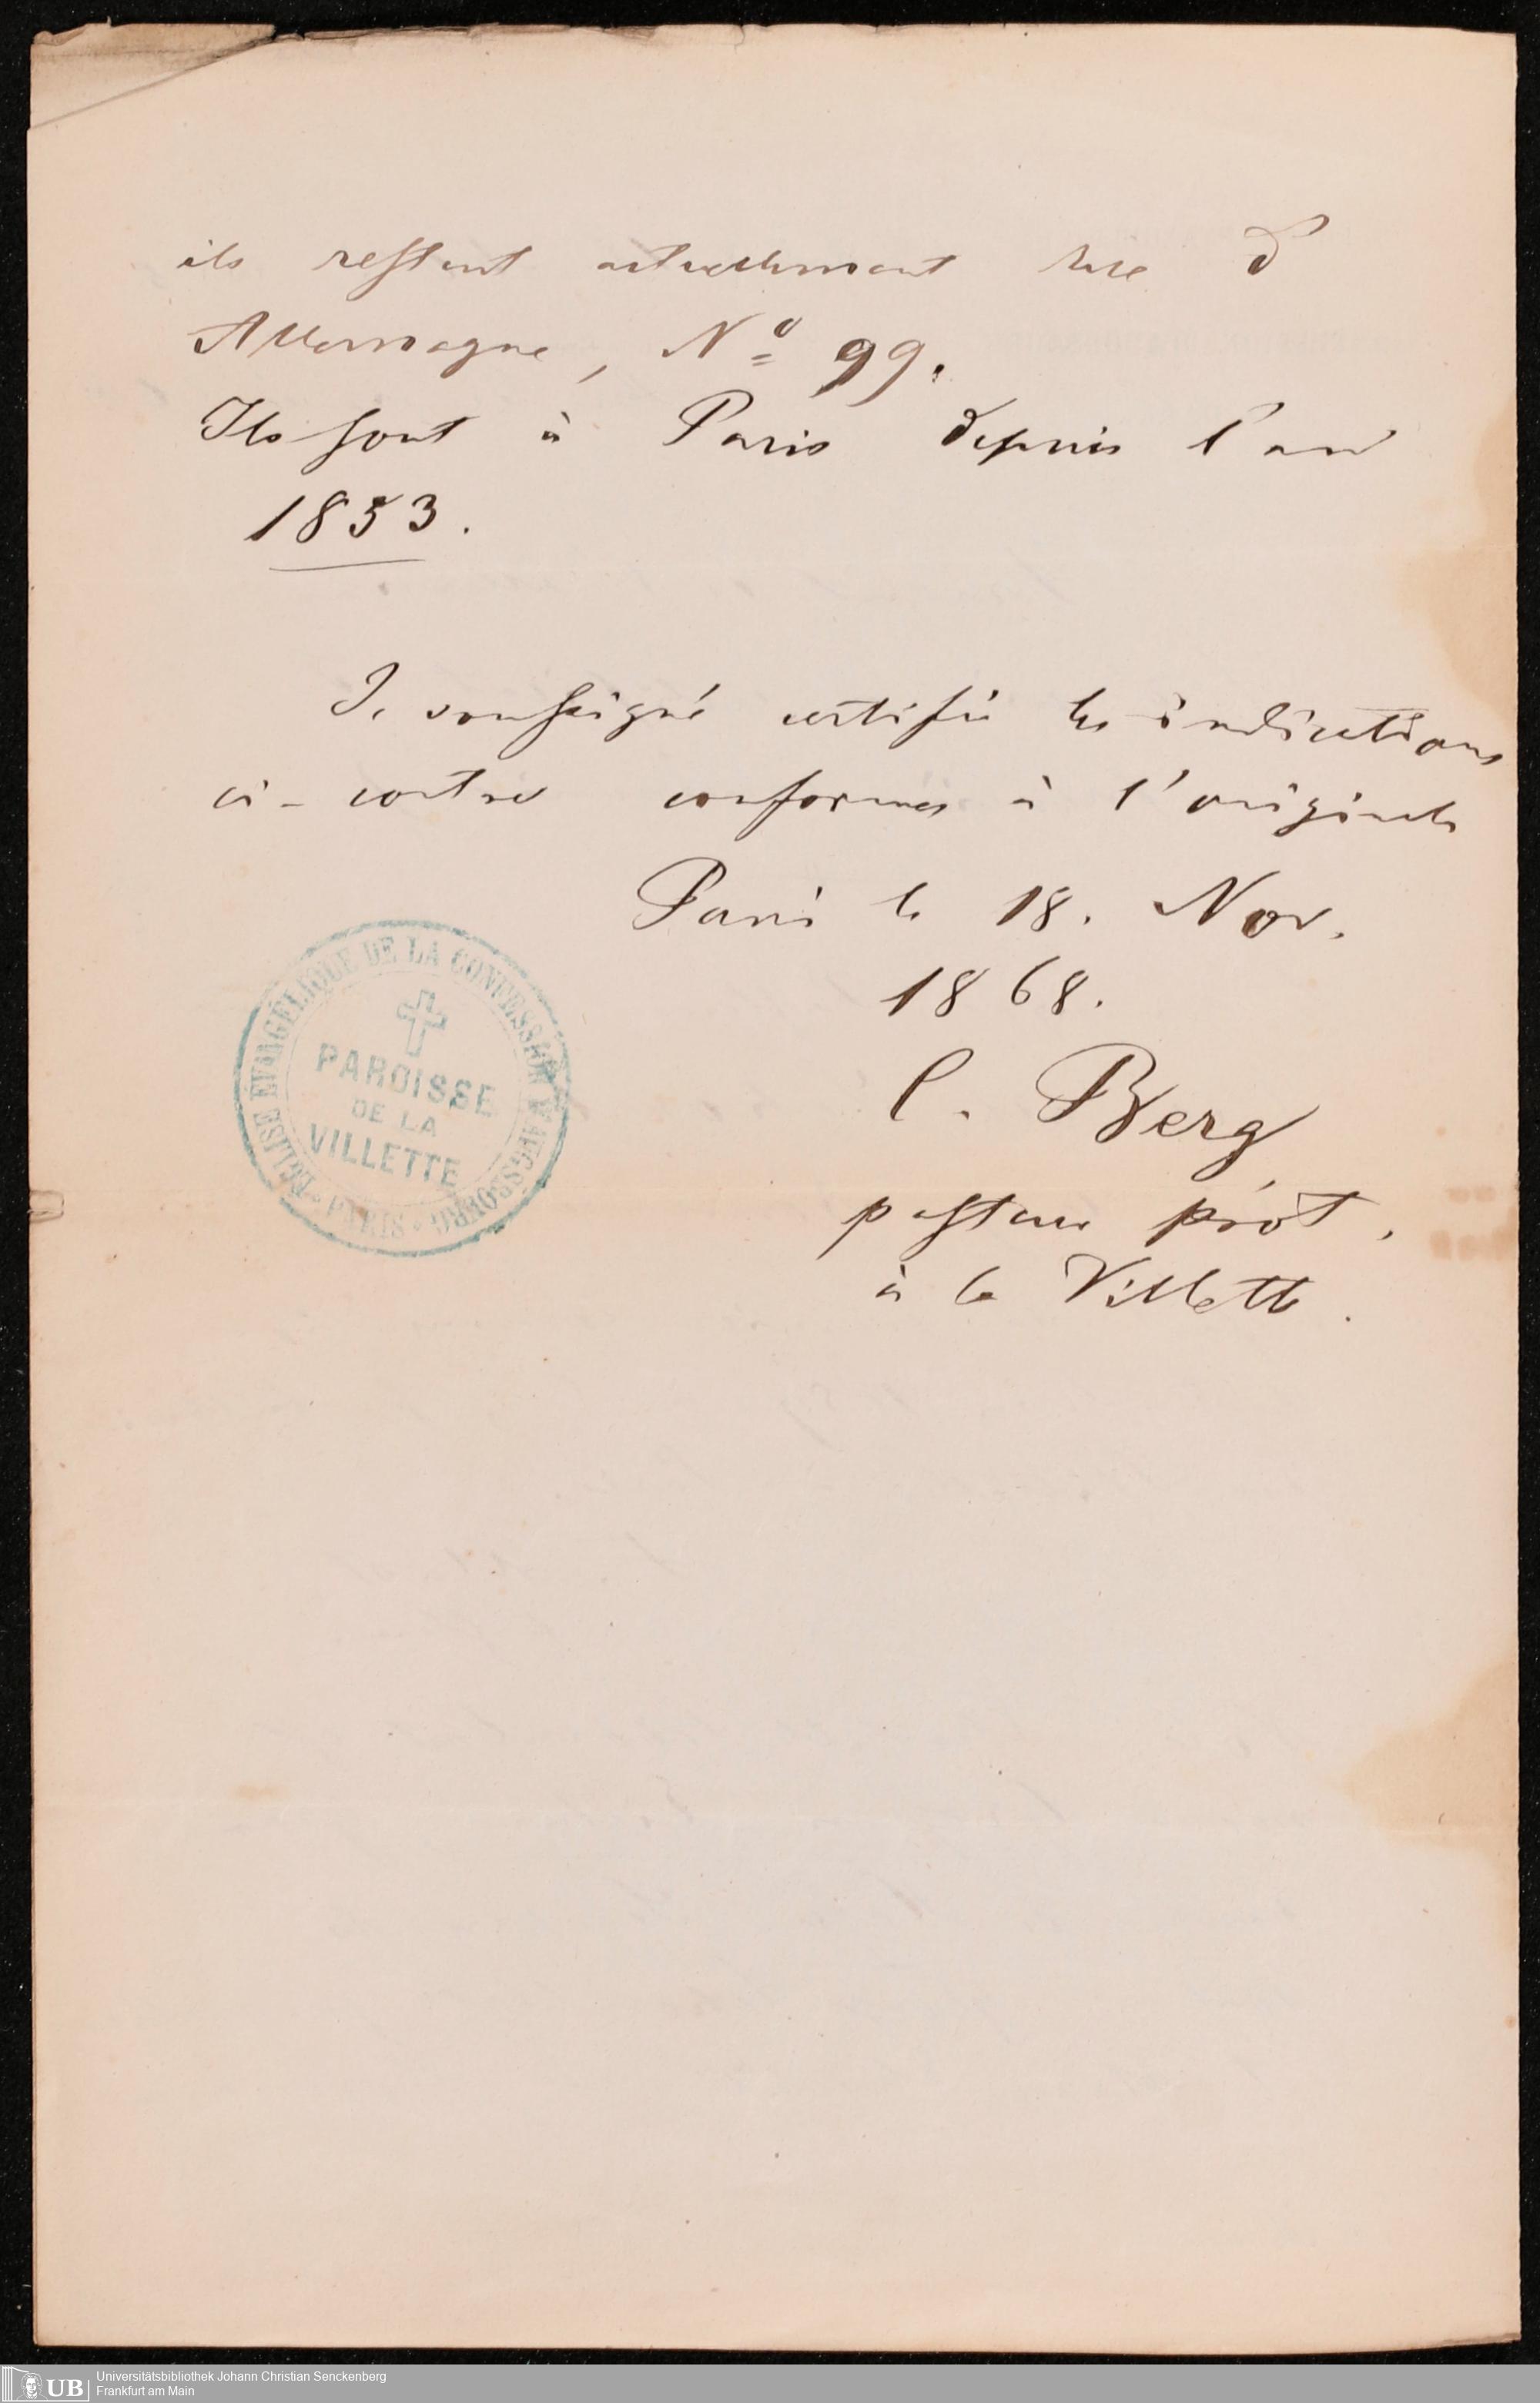 ils restent actuellement rue d'
Allemagne, Nº 99.
Ils sont à Paris depuis l'an
1853.
Je soussigné certifie les indications
ci-contre conformes à l'originale
Paris le 18. Nov.
1868.
C. Berg
pasteur prot.
à la Villette.
ÉGLISE ÉVANGÉLIQUE DE LA CONFESSION D'AUGSBOURG
PARIS
PAROISSE
DE LA
VILLETTE
UB
Universitätsbibliothek Johann Christian Senckenberg
Frankfurt am Main